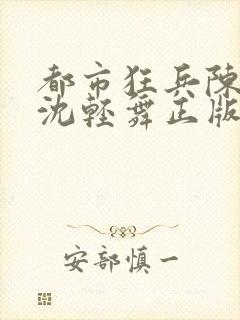 都市狂兵陳
沈輕舞正版
安部慎一